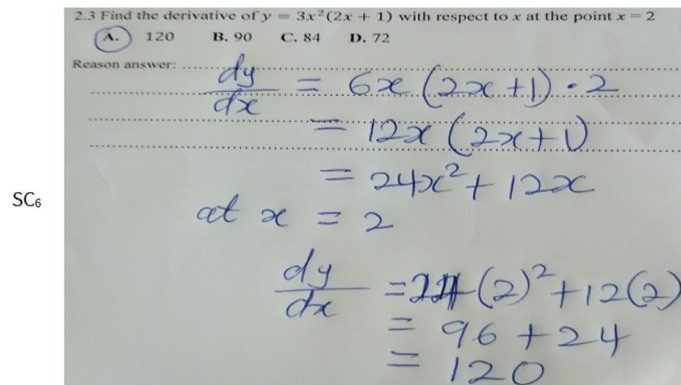 2.3 Find the derivative of y = 3x²(2x + 1) with respect to x at the point x = 2
A. 120 B. 90 C. 84 D. 72
Reason answer:
dy/dx = 6x (2x+1) · 2
= 12x (2x+1)
= 24x² + 12x
SC6
at x = 2
dy/dx = 24(2)² + 12(2)
= 96 + 24
= 120